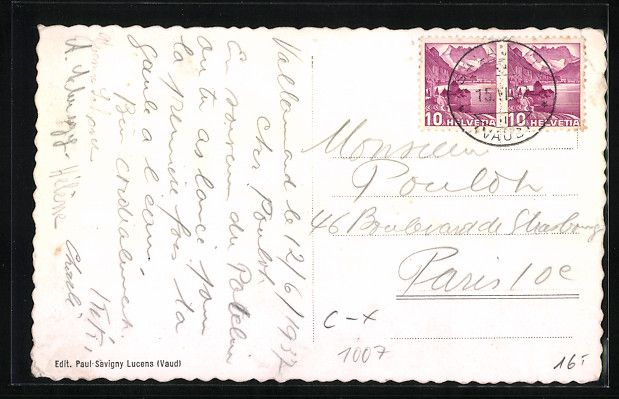 le 12/6/1937
Cher Poulot
En souvenir du
où tu as lancé pour
la première fois ta
gaule à l'eau
Bien cordialement
Hélène
10 HELVETIA
10 HELVETIA
15
(VAUD)
Monsieur
Poulot
46 Boulevard de Strasbourg
Paris 10e
C-x
1007
16.-
Edit. Paul Savigny Lucens (Vaud)